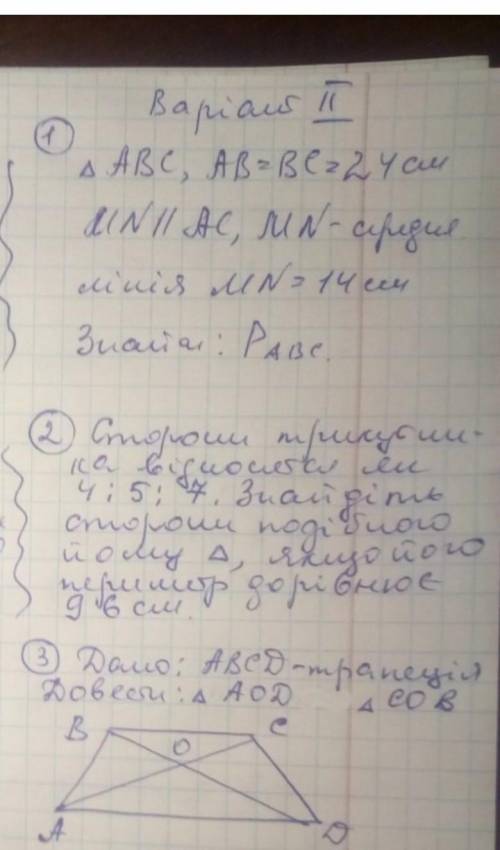 Варіант II
1
△ ABC, AB = BC = 24 см
MN || AC, MN - средня
лінія MN = 14 см
Знайти: P ABC.
2 Сторони трикутни-
ка відносяться як
4 : 5 : 7. Знайдіть
сторони подібного
йому △, якщо його
периметр дорівнює
96 см.
3 Дано: ABCD - трапеція
Довести: △ AOD △ COB
B C
O
A D